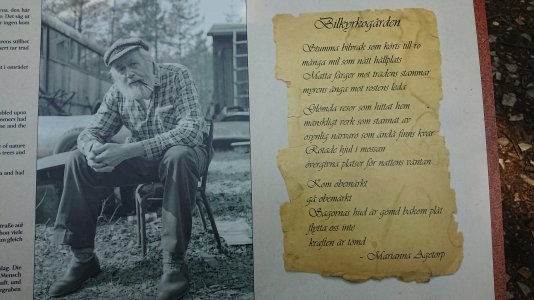 den här
Det såg ut
ingen kom
stillhet
tar trad
i området
upon
owners had
and the
of nature
trees and
and had
auf
viele
gleich
Die
Mensch
und
Bilkyrkogården
Stumma bilvrak som körts till ro
många mil som nått hållplats
Matta färger mot trädens stammar
myrens ånga mot rostens leda
Glömda resor som hittat hem
mänskligt verk som stannat av
osynlig närvaro som ändå finns kvar
Rotade hjul i mossan
övergivna platser för nattens väntan
Kom obemärkt
gå obemärkt
Sagornas hud är gömd bakom plåt
flytta oss inte
kraften är tömd
- Marianna Agetorp